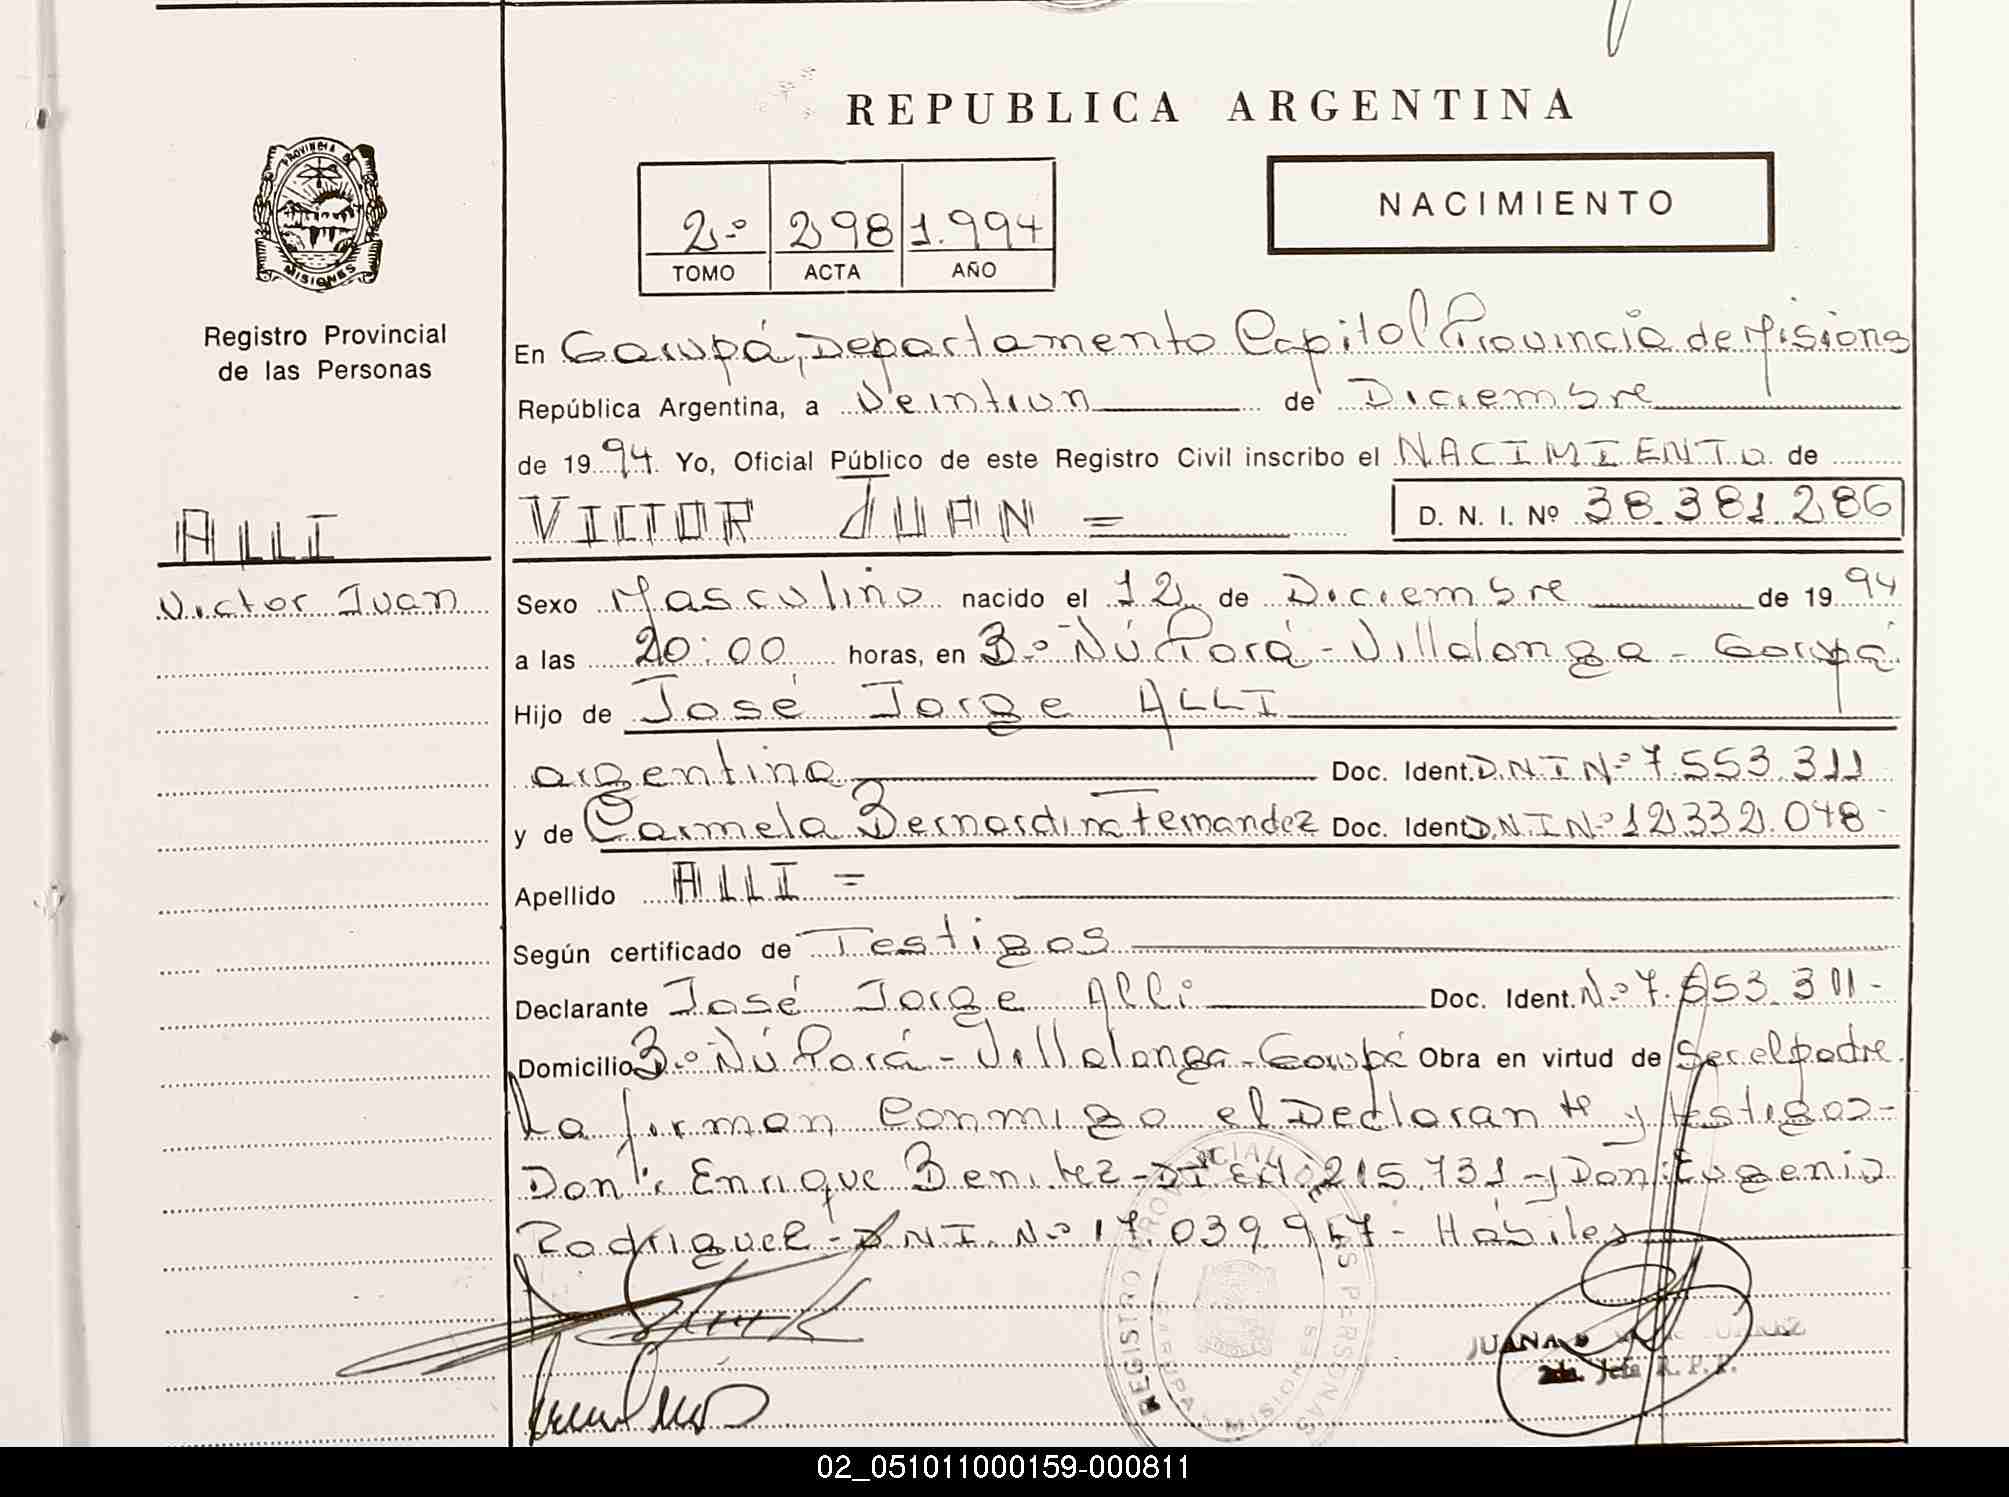 REPUBLICA ARGENTINA
PROVINCIA DE
MISIONES
Registro Provincial
de las Personas
2º 298 1.994
TOMO ACTA AÑO
NACIMIENTO
En Garupá, Departamento Capital Provincia de Misiones
República Argentina, a Veintiun de Diciembre
de 1994. Yo, Oficial Público de este Registro Civil inscribo el NACIMIENTO de
VICTOR JUAN = D. N. I. Nº 38.381.286
ALLI
Victor Juan
Sexo Masculino nacido el 12 de Diciembre de 1994
a las 20:00 horas, en Bº Ñú Porá - Villalonga - Garupá
Hijo de José Jorge ALLI
argentino Doc. Ident. D.N.I Nº 7.553.311
y de Carmela Bernardina Fernandez Doc. Ident. D.N.I Nº 12.332.048-
Apellido ALLI =
Según certificado de Testigos
Declarante José Jorge Alli Doc. Ident. Nº 7.553.311-
Domicilio Bº Ñú Porá - Villalonga - Garupá Obra en virtud de Ser el padre.
La firman conmigo el Declarante y testigos-
Don: Enrique Benitez - DI 215.731 - y Don: Eugenio
Rodriguez - D.N.I. Nº 17.039.957 - Hábiles
REGISTRO PROVINCIAL DE LAS PERSONAS
GARUPA MISIONES
JUANA
2da. Jefa R. P. P.
02_051011000159-000811